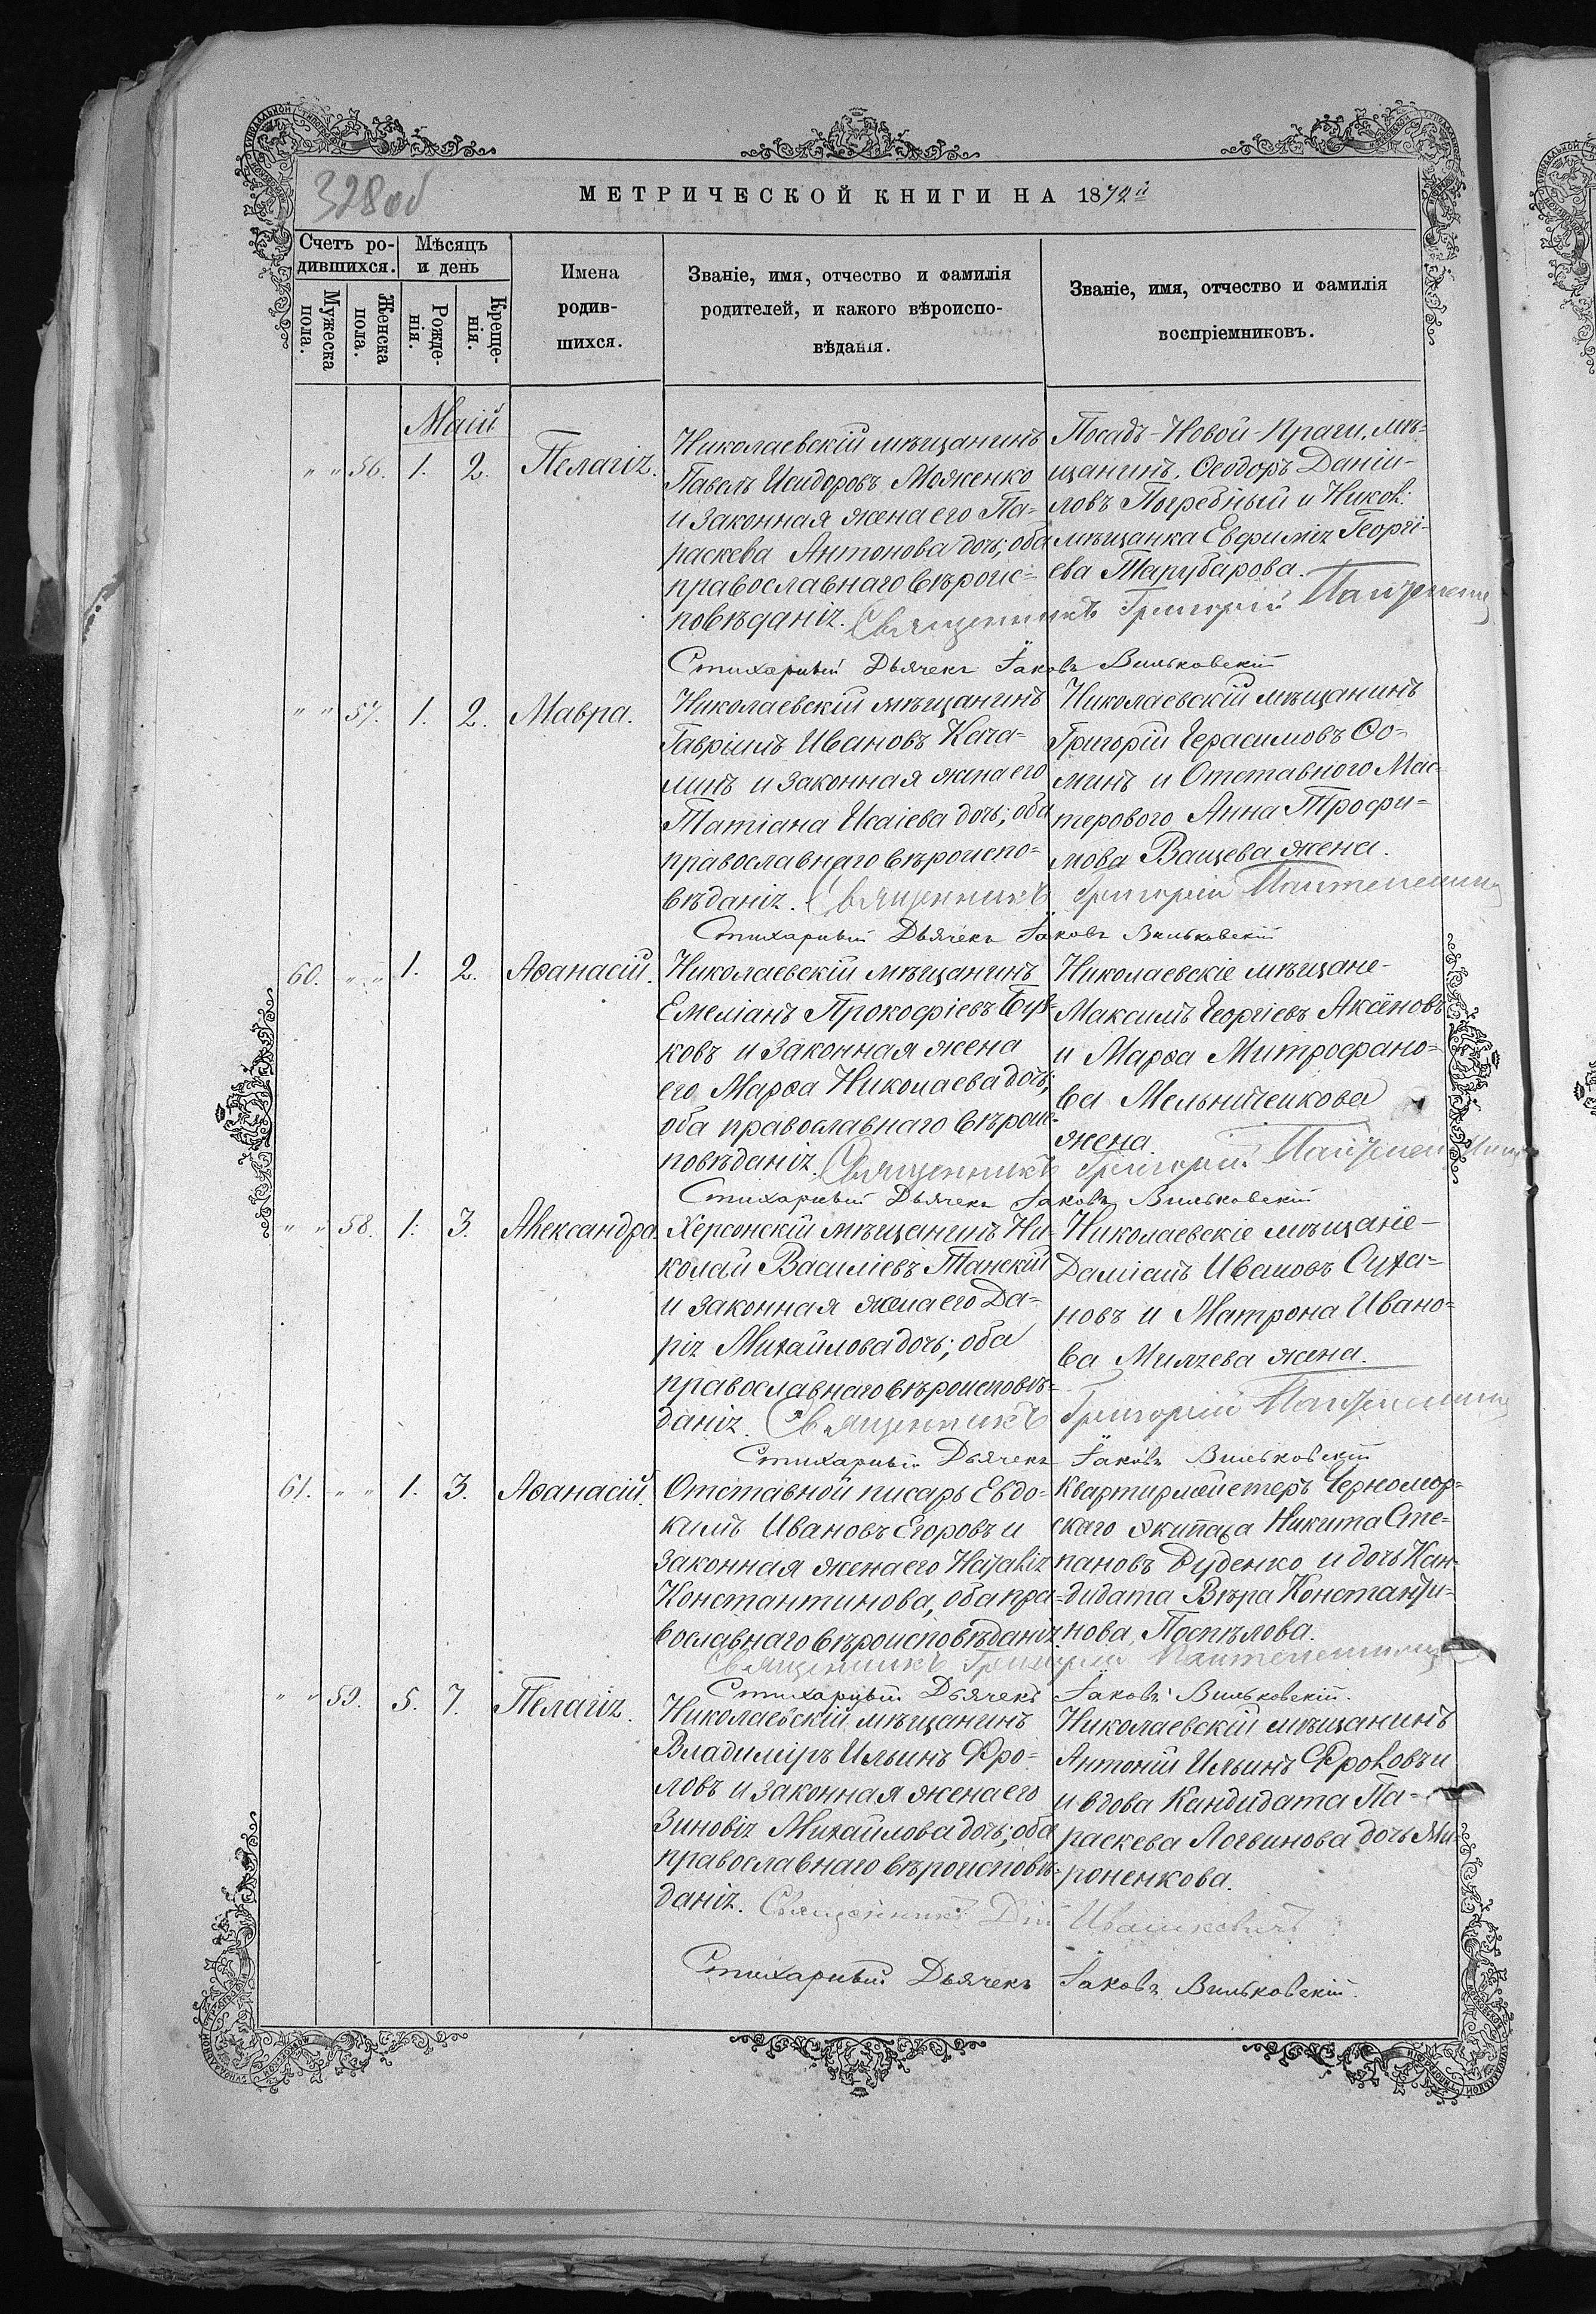 328 об
МЕТРИЧЕСКОЙ КНИГИ НА 1872й
Счетъ ро-
дившихся.
Мѣсяцъ
и день
Мужеска
пола.
Женска
пола.
Рожде-
нія.
Креще-
нія.
Имена
родив-
шихся.
Званіе, имя, отчество и фамилія
родителей, и какого вѣроиспо-
вѣданія.
Званіе, имя, отчество и фамилія
воспріемниковъ.
Маій
" " 56. 1. 2. Пелагія.
Николаевскій мѣщанинъ
Павелъ Исидоровъ Моженко
и законная жена его Па-
раскева Антонова дочь; оба
православнаго вѣроис-
повѣданія.
Посадъ-Новой-Праги, мѣ-
щанинъ, Ѳеодоръ Даніи-
ловъ Погребный и Никол:
мѣщанка Евфимія Георгі-
ева Тарубарова.
Священникъ Григорій
Стихарный Дьячекъ Іаковъ Вильковскій
" " 57. 1. 2. Мавра.
Николаевскій мѣщанинъ
Гавріилъ Ивановъ Кача-
линъ и законная жена его
Татіана Исаіева дочь; оба
православнаго вѣроиспо-
вѣданія.
Николаевскій мѣщанинъ
Григорій Герасимовъ Ѳо-
минъ и Отставного Мас-
терового Анна Трофи-
мова Ващева жена.
Священникъ Григорій
Стихарный Дьячекъ Іаковъ Вильковскій
60. " " 1. 2. Аѳанасій.
Николаевскій мѣщанинъ
Емеліанъ Прокофіевъ
ковъ и законная жена
его Марѳа Николаева дочь;
оба православнаго вѣроис-
повѣданія.
Николаевскіе мѣщане-
Максимъ Георгіевъ Аксёновъ
и Марѳа Митрофано-
ва Мельниченкова
жена.
Священникъ Григорій
Стихарный Дьячекъ Іаковъ Вильковскій
" " 58. 1. 3. Александра.
Херсонскій мѣщанинъ Ни-
колай Василіевъ Танскій
и законная жена его Да-
рія Михайлова дочь; оба
православнаго вѣроисповѣ-
данія.
Николаевскіе мѣщане-
Даміанъ Ивановъ Суха-
новъ и Матрона Ивано-
ва жена.
Священникъ Григорій
Стихарный Дьячекъ Іаковъ Вильковскій
61. " " 1. 3. Аѳанасій.
Отставной писарь Евдо-
кимъ Ивановъ Егоровъ и
законная жена его Наталія
Константинова, оба пра-
вославнаго вѣроисповѣданія
Квартирмейстеръ Черномор-
скаго экипажа Никита Сте-
пановъ Руденко и дочь Кан-
дидата Вѣра Константи-
нова, Поспѣлова.
Священникъ Григорій
Стихарный Дьячекъ Іаковъ Вильковскій.
" " 59. 5. 7. Пелагія.
Николаевскій мѣщанинъ
Владиміръ Ильинъ Фро-
ловъ и законная жена его
Зиновія Михайлова дочь; оба
православнаго вѣроисповѣ-
данія.
Николаевскій мѣщанинъ
Антоній Ильинъ Фроловъ и
и вдова Кандидата Па-
раскева Логвинова дочь Ми-
роненкова.
Священникъ Дій Ивашкевичъ
Стихарный Дьячекъ Іаковъ Вильковскій.